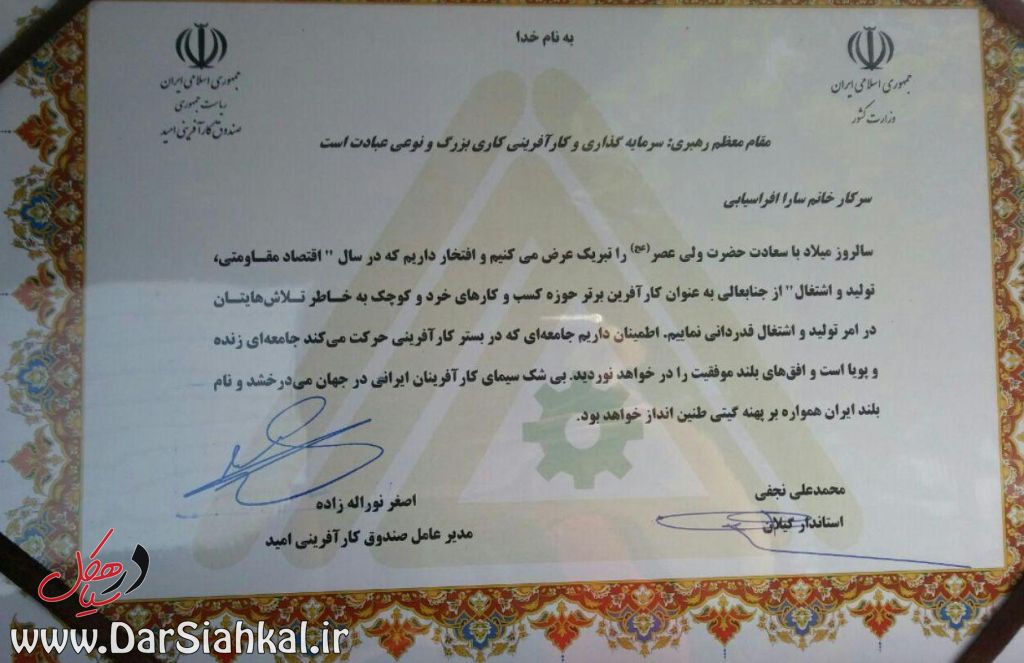 به نام خدا
جمهوری اسلامی ایران
وزارت کشور
جمهوری اسلامی ایران
ریاست جمهوری
صندوق کارآفرینی امید
مقام معظم رهبری: سرمایه گذاری و کارآفرینی کاری بزرگ و نوعی عبادت است
سرکار خانم سارا افراسیابی
سالروز میلاد با سعادت حضرت ولی عصر(عج) را تبریک عرض می کنیم و افتخار داریم که در سال " اقتصاد مقاومتی،
تولید و اشتغال" از جنابعالی به عنوان کارآفرین برتر حوزه کسب و کارهای خرد و کوچک به خاطر تلاش‌هایتان
در امر تولید و اشتغال قدردانی نماییم. اطمینان داریم جامعه‌ای که در بستر کارآفرینی حرکت می‌کند جامعه‌ای زنده
و پویا است و افق‌های بلند موفقیت را در خواهد نوردید. بی شک سیمای کارآفرینان ایرانی در جهان می‌درخشد و نام
بلند ایران همواره بر پهنه گیتی طنین انداز خواهد بود.
محمدعلی نجفی
استاندار گیلان
اصغر نوراله زاده
مدیر عامل صندوق کارآفرینی امید
در سیاهکل
www.DarSiahkal.ir